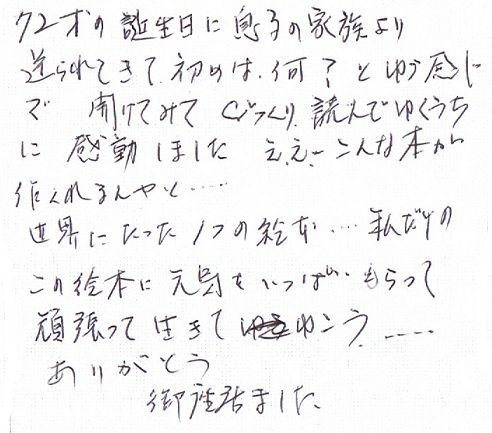 72才の誕生日に息子の家族より
送られてきて初めは、何？とゆう感じ
で 開けてみてびっくり、読んでゆくうち
に 感動しました ええーこんな本が
作くれるんやと……
世界にたった1つの絵本…私だけの
この絵本に元気をいっぱいもらって
頑張って生きてゆこう……
ありがとう
御座居ました